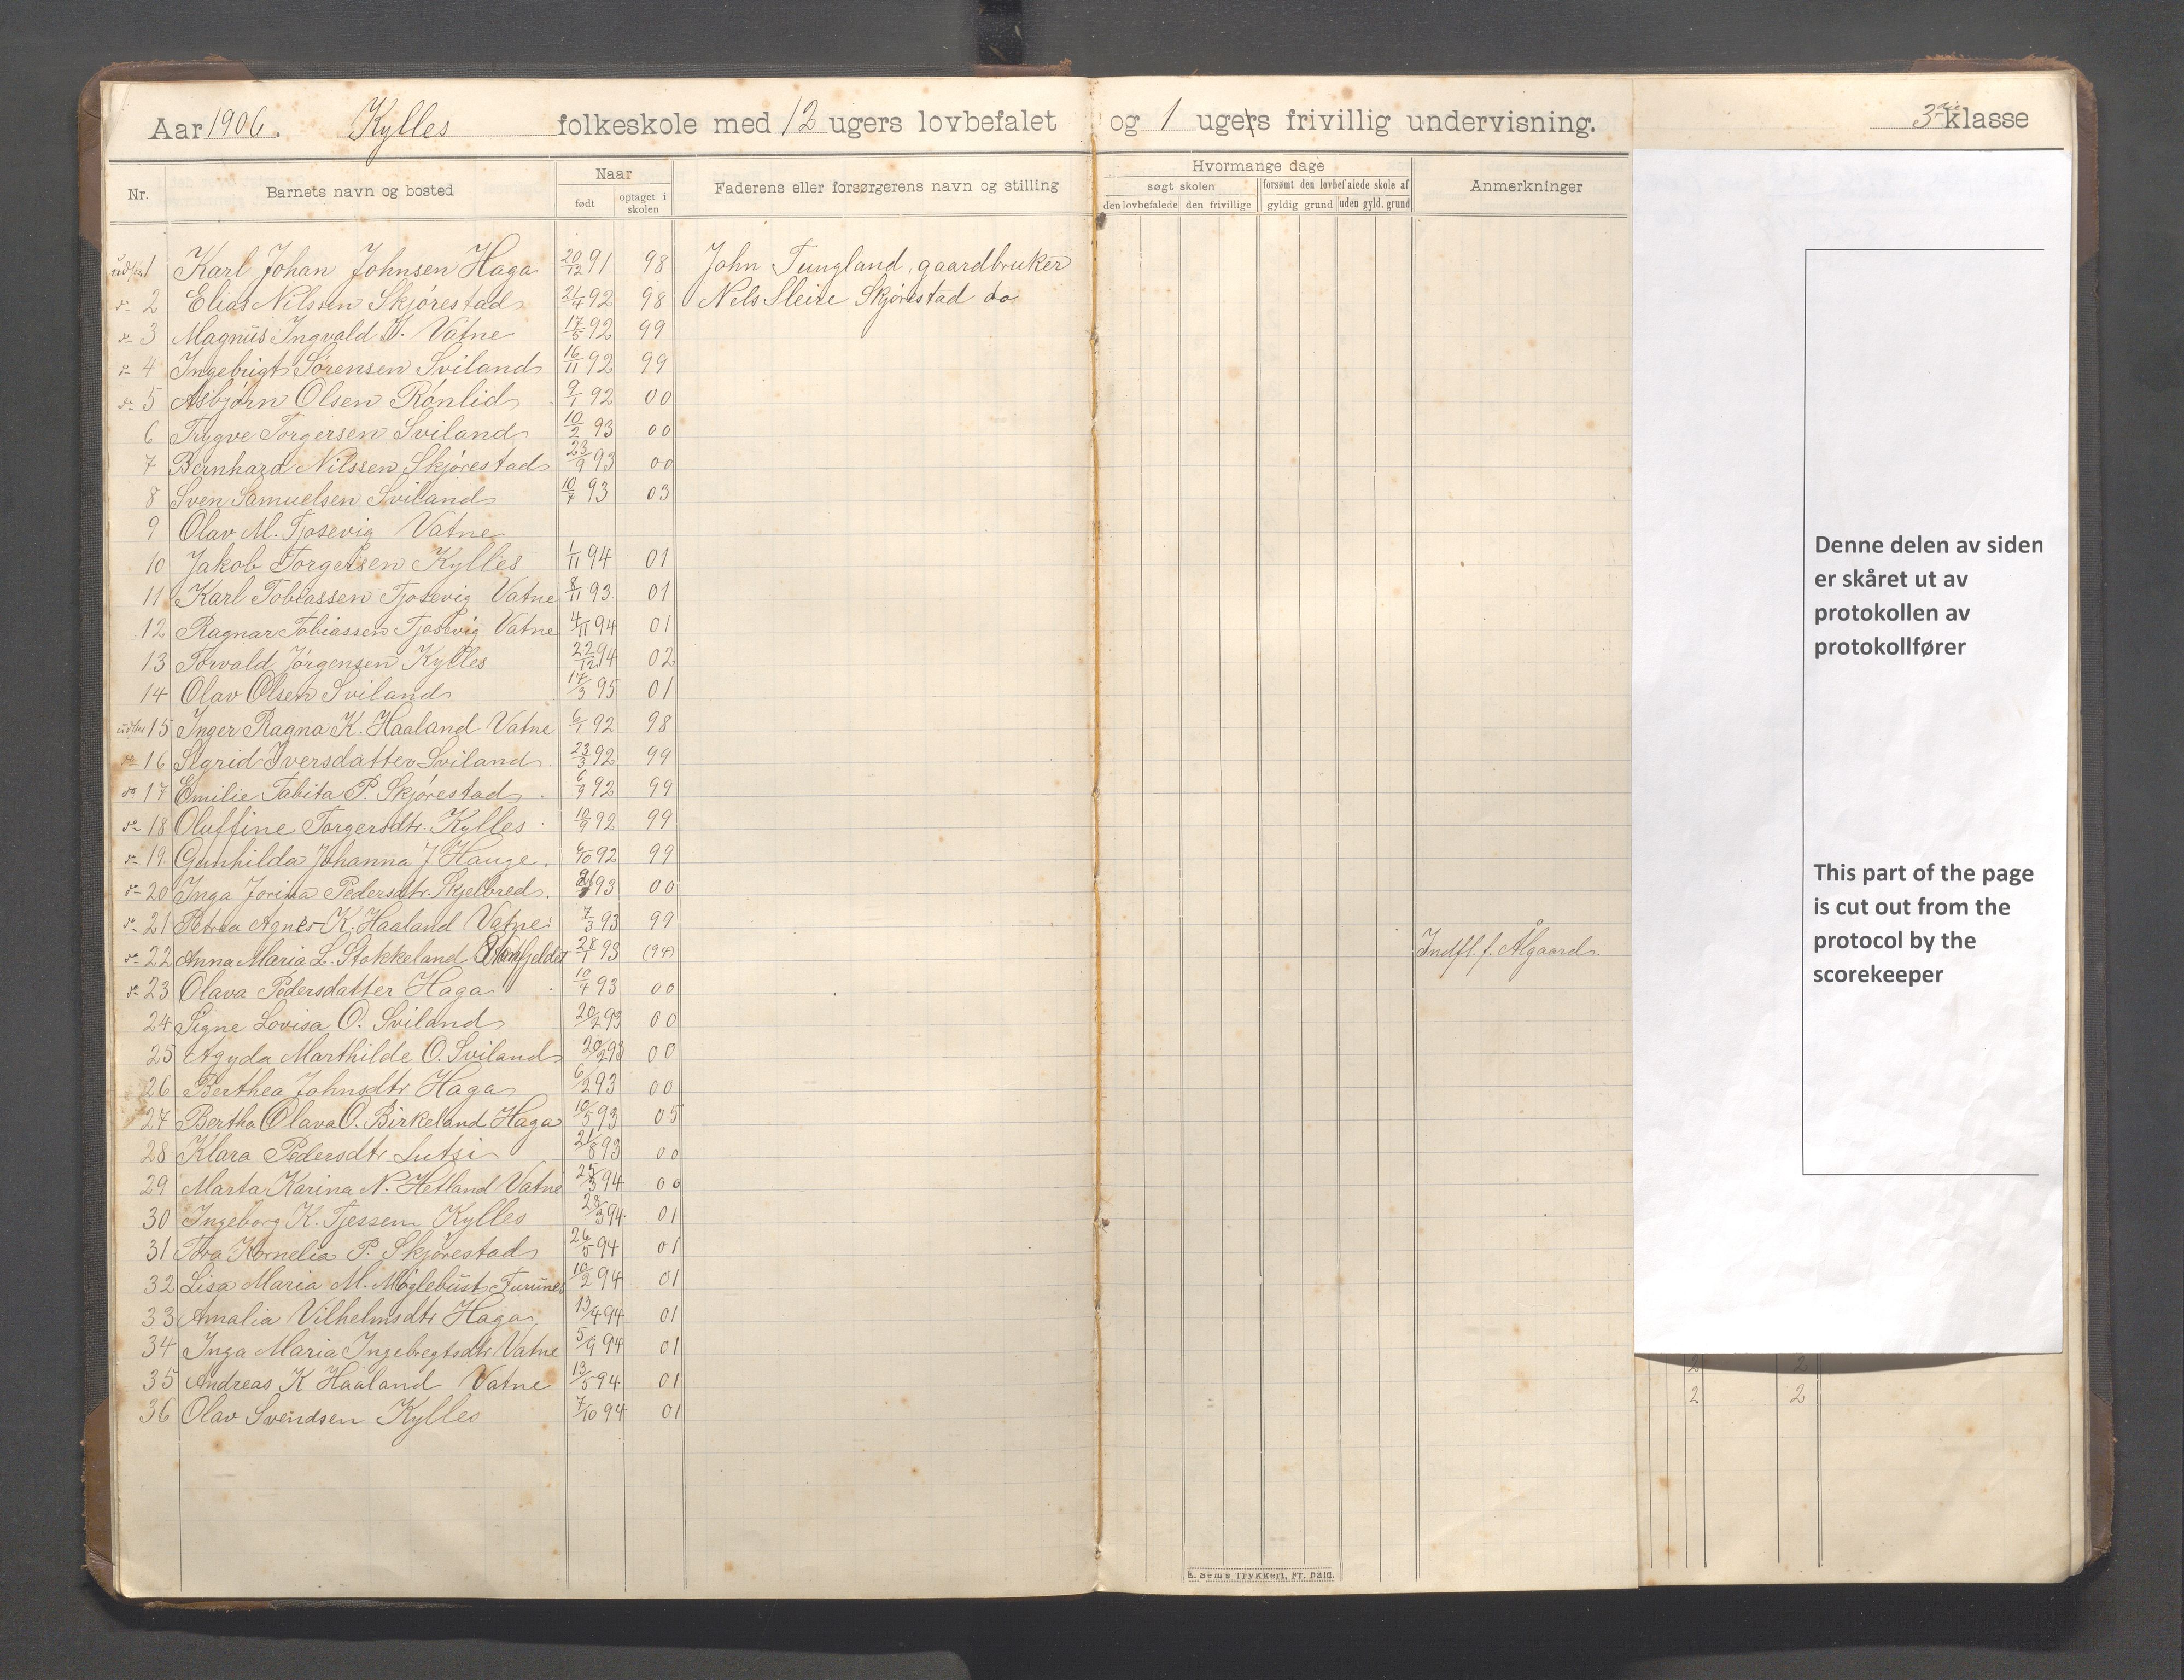 Aar 1906. Kylles folkeskole med 12 ugers lovbefalet og 1 ugers frivillig undervisning. 3die klasse
Nr. Barnets navn og bosted Naar født optaget i skolen Faderens eller forsørgerens navn og stilling Hvormange dage søgt skolen den lovbefalede den frivillige forsømt den lovbefalede skole af gyldig grund uden gyld. grund Anmerkninger
1 Karl Johan Johnsen Haga 20/12 91 98 John Tungland, gaardbruker
do 2 Elias Nilssen Skjørestad 21/4 92 98 Nels Sleire Skjørestad do
do 3 Magnus Ingvald K. Vatne 17/5 92 99
do 4 Ingebrigt Sørensen Sviland 16/11 92 99
do 5 Asbjørn Olsen Rønlid 9/1 92 00
6 Trygve Torgersen Sviland 10/2 93 00
7 Bernhard Nilssen Skjørestad 23/9 93 00
8 Sven Samuelsen Sviland 10/7 93 03
9 Olav M. Tjosevig Vatne
10 Jakob Torgersen Kylles 1/11 94 01
11 Karl Tobiassen Tjosevig Vatne 8/11 93 01
12 Ragnar Tobiassen Tjosevig Vatne 4/11 94 01
13 Torvald Jørgensen Kylles 22/12 94 02
14 Olav Olsen Sviland 17/3 95 01
15 Inger Ragna K. Haaland Vatne 6/1 92 98
do 16 Sigrid Iversdatter Sviland 23/3 92 99
do 17 Emilie Tabita P. Skjørestad 6/9 92 99
do 18 Oluffine Torgersdtr. Kylles 10/9 92 99
do 19 Gunhilda Johanna J Hauge 6/10 92 99
do 20 Inga Jorina Pedersdtr. Skjelbred 93 00
do 21 Petrea Agnes K. Haaland Vatne 7/3 93 99
do 22 Anna Maria L. Stokkeland 28/1 93 (94) Indfl. f. Ålgaard.
do 23 Olava Pedersdatter Haga 10/4 93 00
24 Signe Lovisa O. Sviland 20/2 93 00
25 Agyda Marthilde O. Sviland 20/2 93 00
26 Berthea Johnsdtr Haga 6/2 93 00
27 Bertha Olava O. Birkeland Haga 10/5 93 05
28 Klara Pedersdtr Lutsi 21/8 93 00
29 Marta Karina N. Hetland Vatne 25/3 94 00
30 Ingeborg K. Tjessem Kylles 28/3 94 01
31 Tora Kornelia P. Skjørestad 26/5 94 01
32 Lisa Maria M. Møglebust Furunes 10/2 94 01
33 Amalia Vilhelmsdtr Haga 13/4 94 01
34 Inga Maria Ingebregtsdtr Vatne 5/9 94 01
35 Andreas K Haaland Vatne 13/5 94 01
36 Olav Svendsen Kylles 7/10 94 01
E. Sem's Trykkeri, Fr.hald.
Denne delen av siden
er skåret ut av
protokollen av
protokollfører
This part of the page
is cut out from the
protocol by the
scorekeeper
2 2
2 2